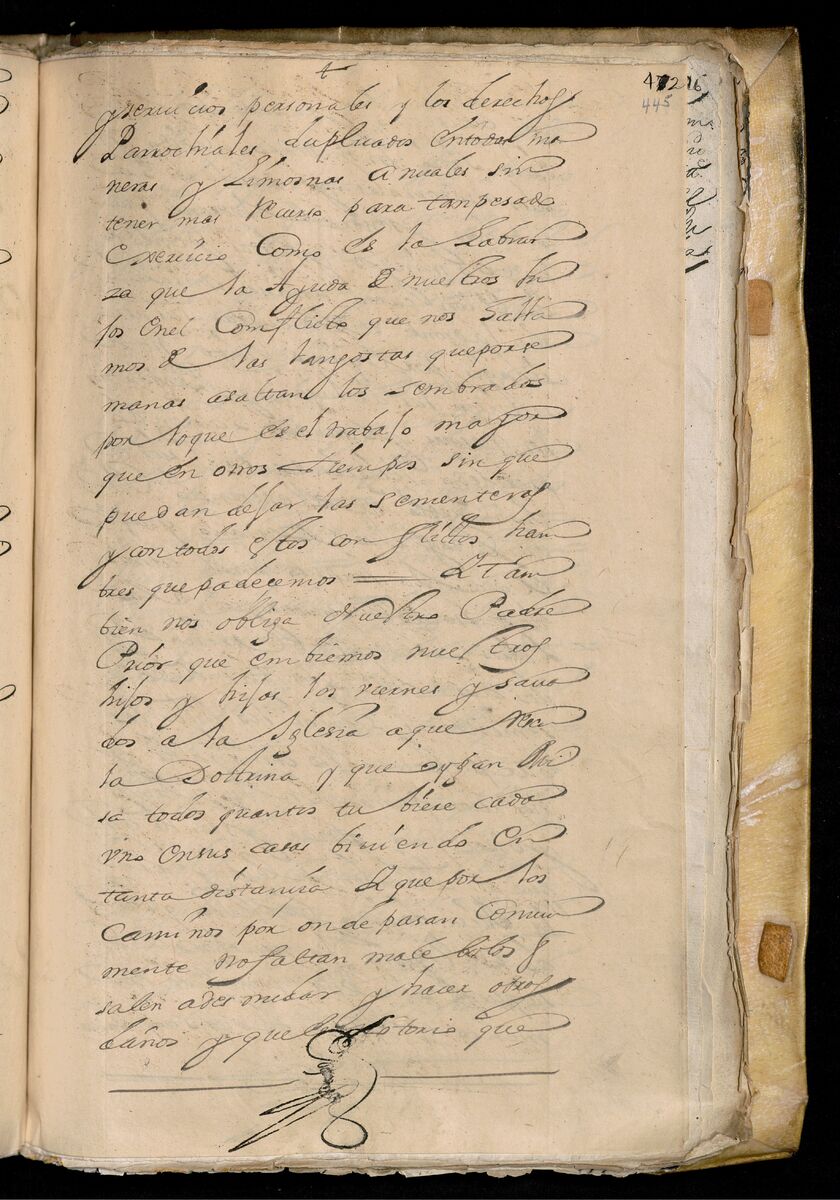 47216
445
y seruicios personales y los derechos
Parrochiales duplicados entodas ma
neras y Limosnas anuales sin
tener mas recurso para tan pesado
exercicio Como es la Labran
za que la Ayuda de nuestros hi
jos en el Conflicto que nos halla
mos de las langostas que por se
manas asaltan los sembrados
por lo que es el trabajo mayor
que en otros tiempos sin que
puedan dejar las sementeras
y con todos estos conflictos ham
bres que padecemos == Y tam
bien nos obliga Nuestro Padre
Prior que embiemos nuestros
hijos y hijas los viernes y saua
dos a la Iglesia a que
la Doctrina y que oygan Mi
sa todos quantos tubiere cada
vno en sus casas biuiendo en
tanta distanzia Y que por los
Caminos por onde pasan Comun
mente no faltan malebolos q
salen a desnudar y hacer otros
daños y que es notorio que